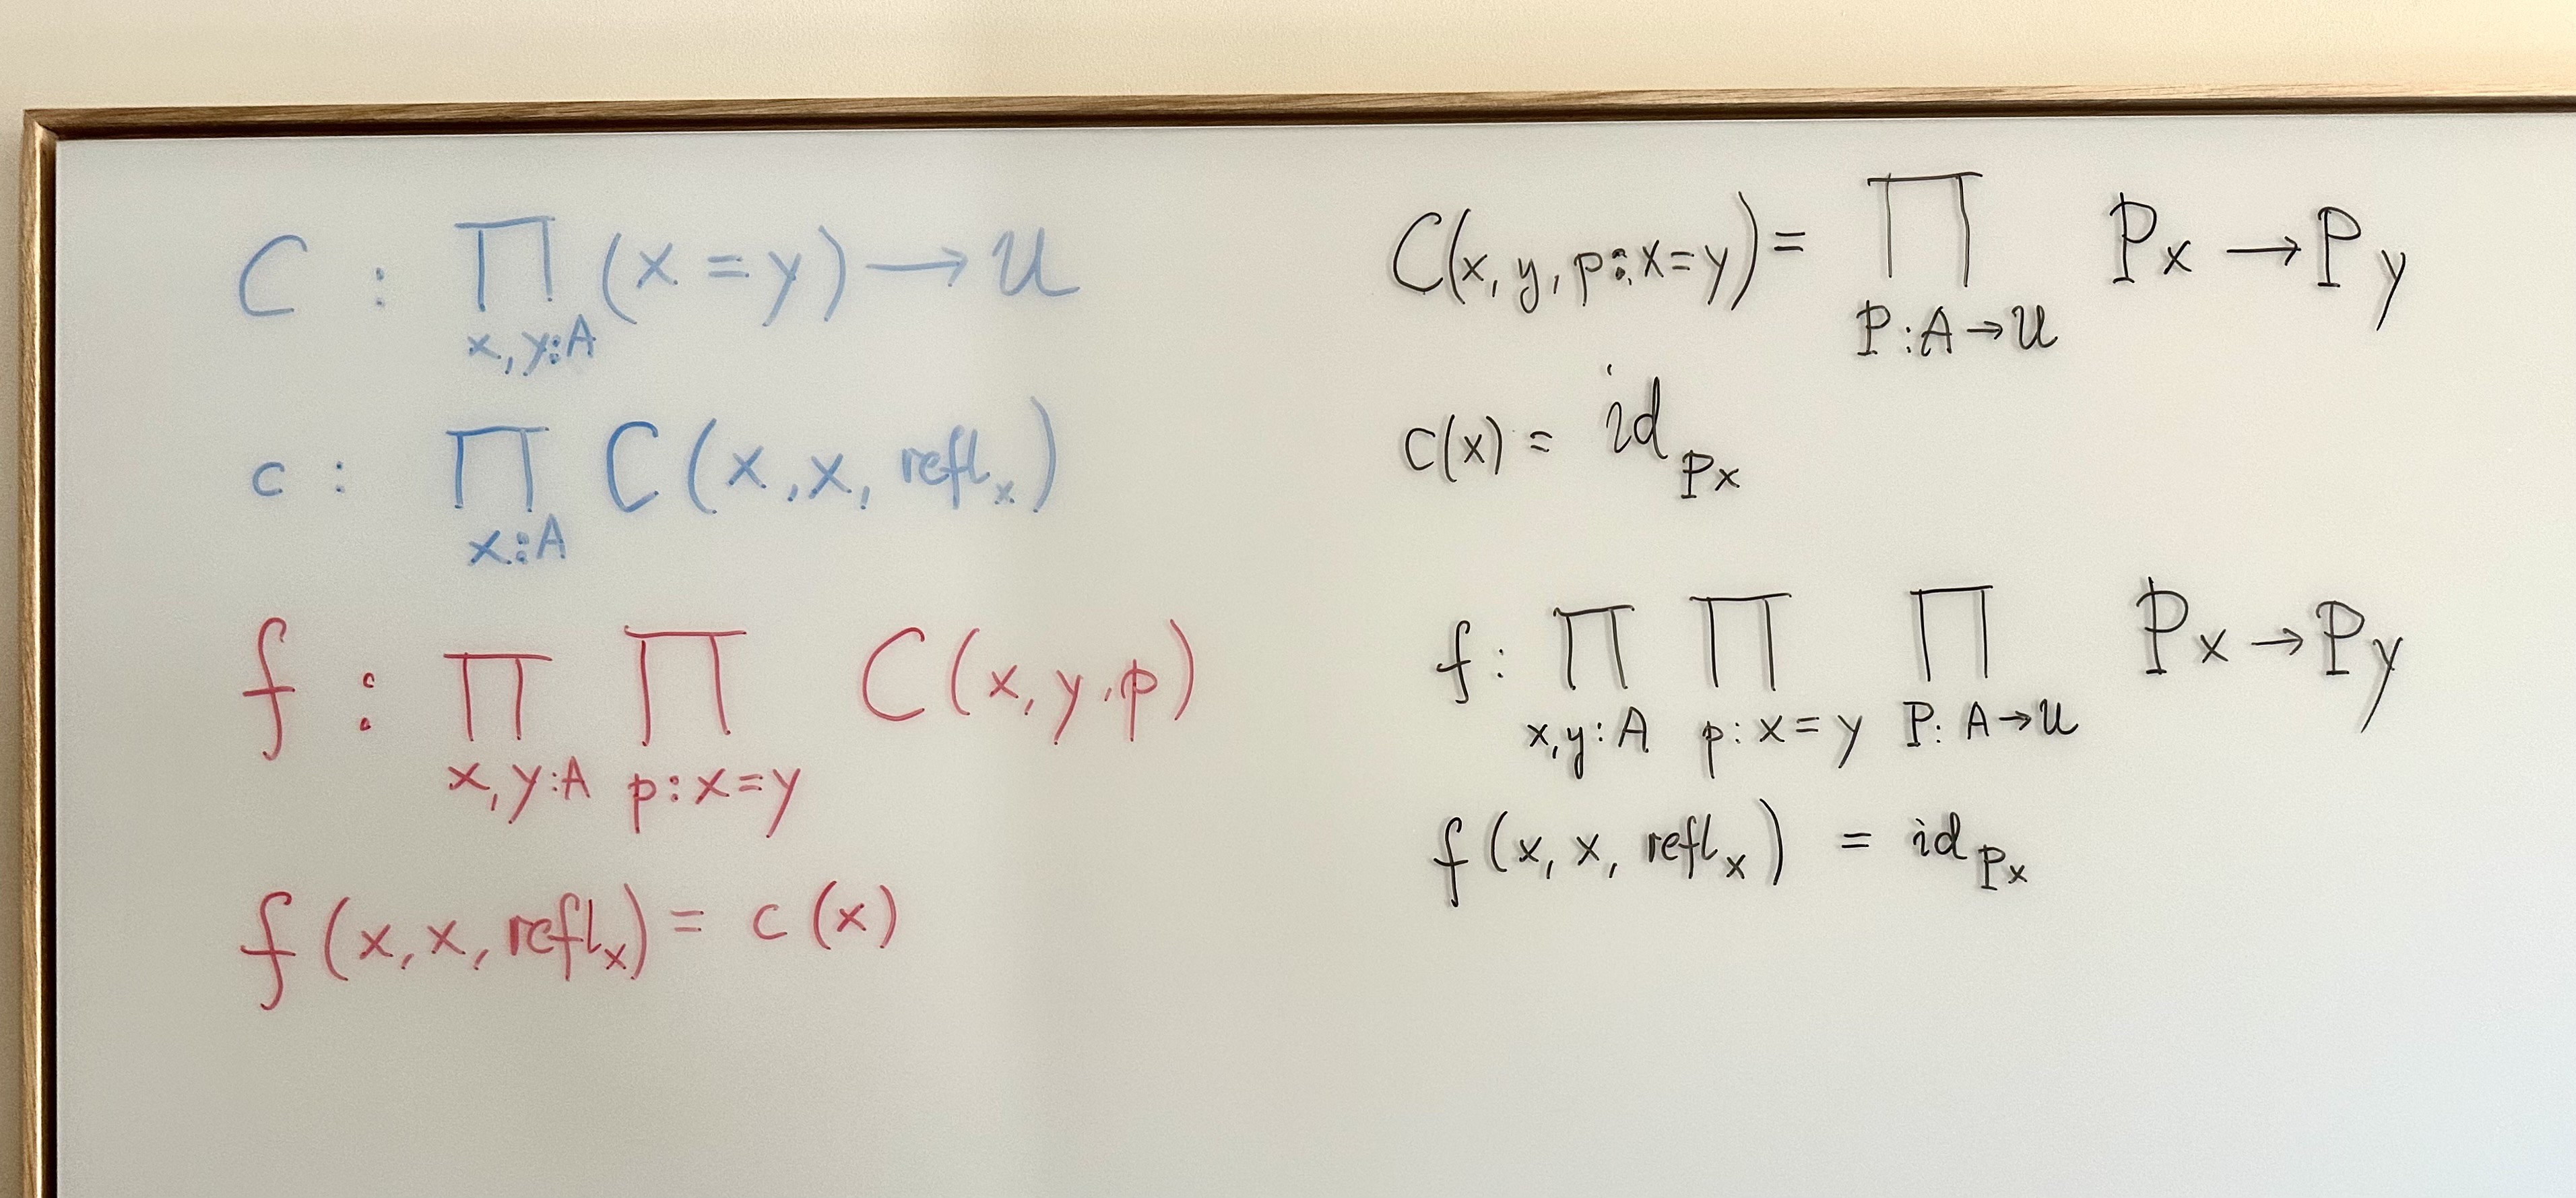 C : ∏_{x,y:A} (x = y) → 𝒰
c : ∏_{x:A} C(x, x, refl_x)
f : ∏_{x,y:A} ∏_{p:x=y} C(x, y, p)
f(x, x, refl_x) = c(x)
C(x, y, p:x=y) = ∏_{P:A→𝒰} Px → Py
c(x) = id_{Px}
f : ∏_{x,y:A} ∏_{p:x=y} ∏_{P:A→𝒰} Px → Py
f(x, x, refl_x) = id_{Px}